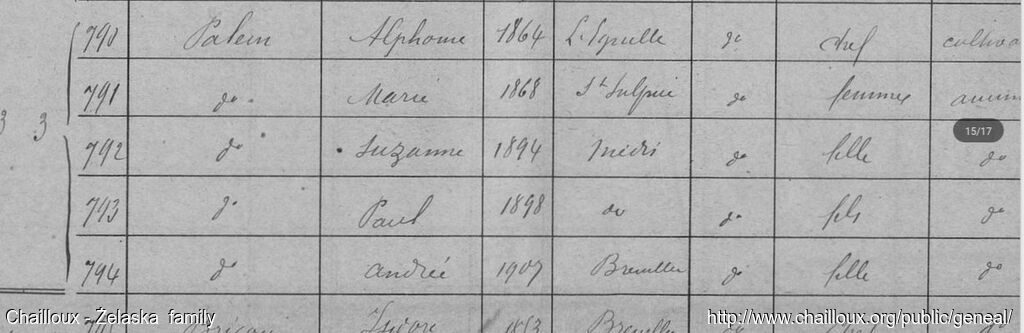 790 Palem Alphonse 1864 L'Eguille do chef cultiva
791 do Marie 1868 St Sulpice do femme aucun
3 3
792 do Suzanne 1894 Médis do fille do
15/17
793 do Paul 1898 do do fils do
794 do Andrée 1907 Breuillet do fille do
Isidore 1853 Breuillet do
Chailloux - Żelaska family
http://www.chailloux.org/public/geneal/